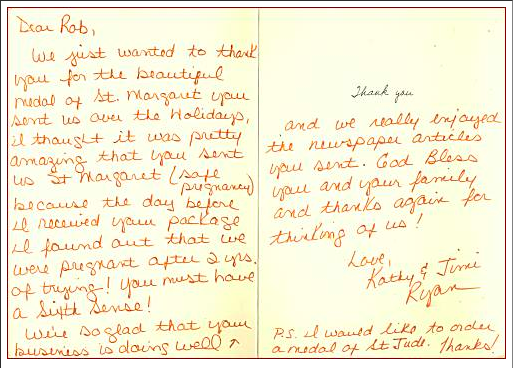 Dear Rob,
We just wanted to thank
you for the beautiful
medal of St. Margaret you
sent us over the Holidays,
I thought it was pretty
amazing that you sent
us St Margaret (safe
pregnancy)
because the day before
I received your package
I found out that we
were pregnant after 2 yrs.
of trying! You must have
a Sixth Sense!
We're so glad that your
business is doing well ↗
Thank you
and we really enjoyed
the newspaper articles
you sent. God Bless
you and your family
and thanks again for
thinking of us!
Love,
Kathy & Jimi
Ryan
P.S. I would like to order
a medal of St Jude. Thanks!